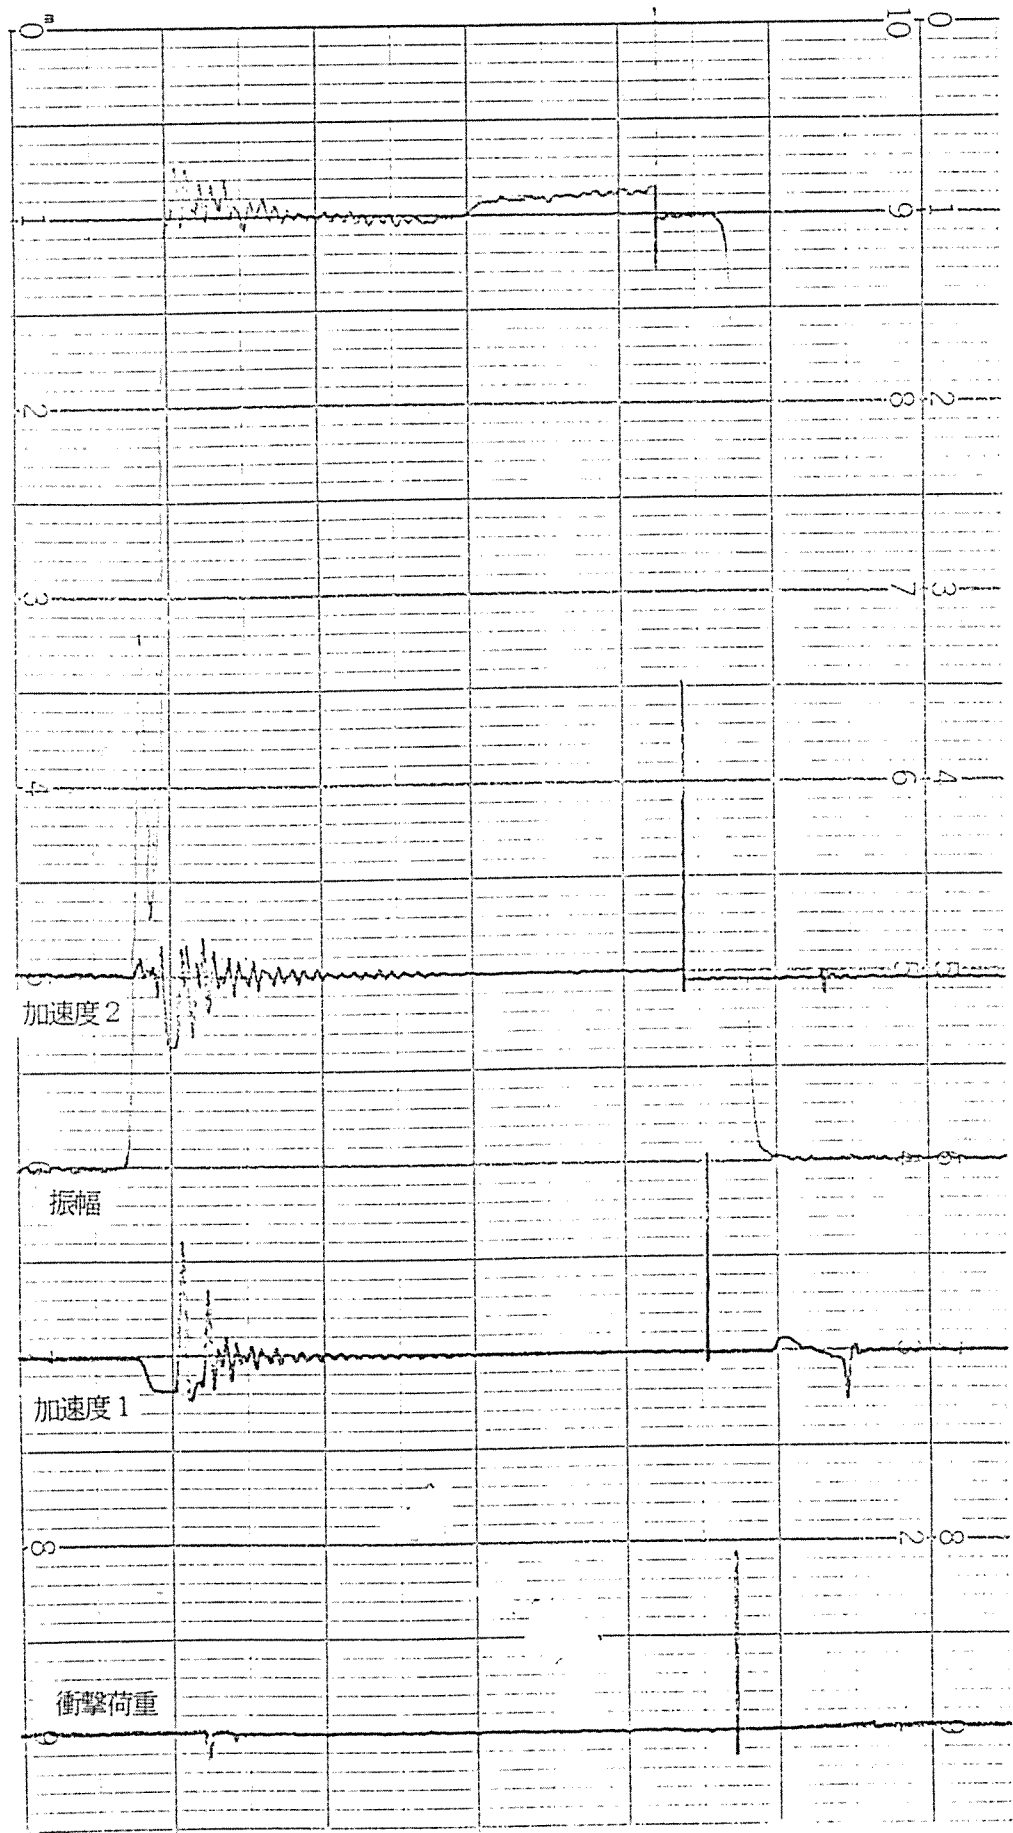 0 m 10 0
1 9 1
2 8 2
3 7 3
4 6 4
5 5 5
加速度２
6 4 6
振幅
3
加速度１
8 2 8
衝撃荷重
9 9